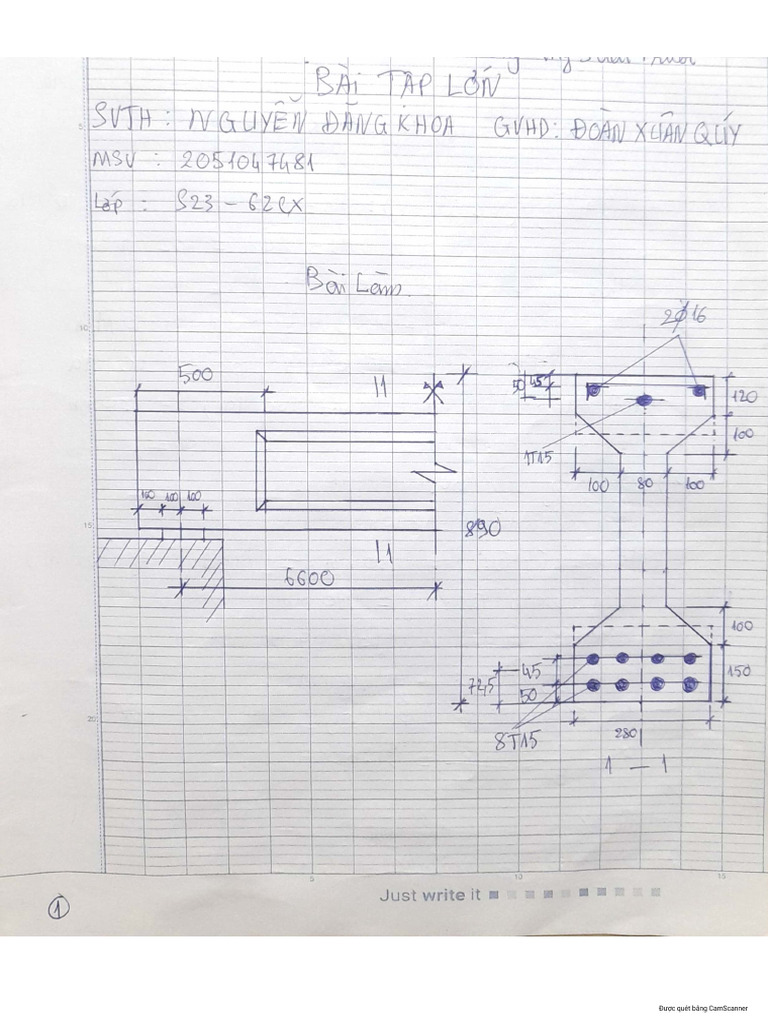 BÀI TẬP LỚN
SVTH : NGUYỄN ĐĂNG KHOA GVHD: ĐOÀN XUÂN QUÝ
MSV : 2051047481
Lớp : S23 - 62CX
Bài Làm
2ϕ16
500
11
50
45
120
100
1T15
100 80 100
150 100 100
890
11
6600
100
45
72,5
50
150
8T15
280
1 — 1
Just write it
1
Được quét bằng CamScanner
5
10
15
20
5
10
15